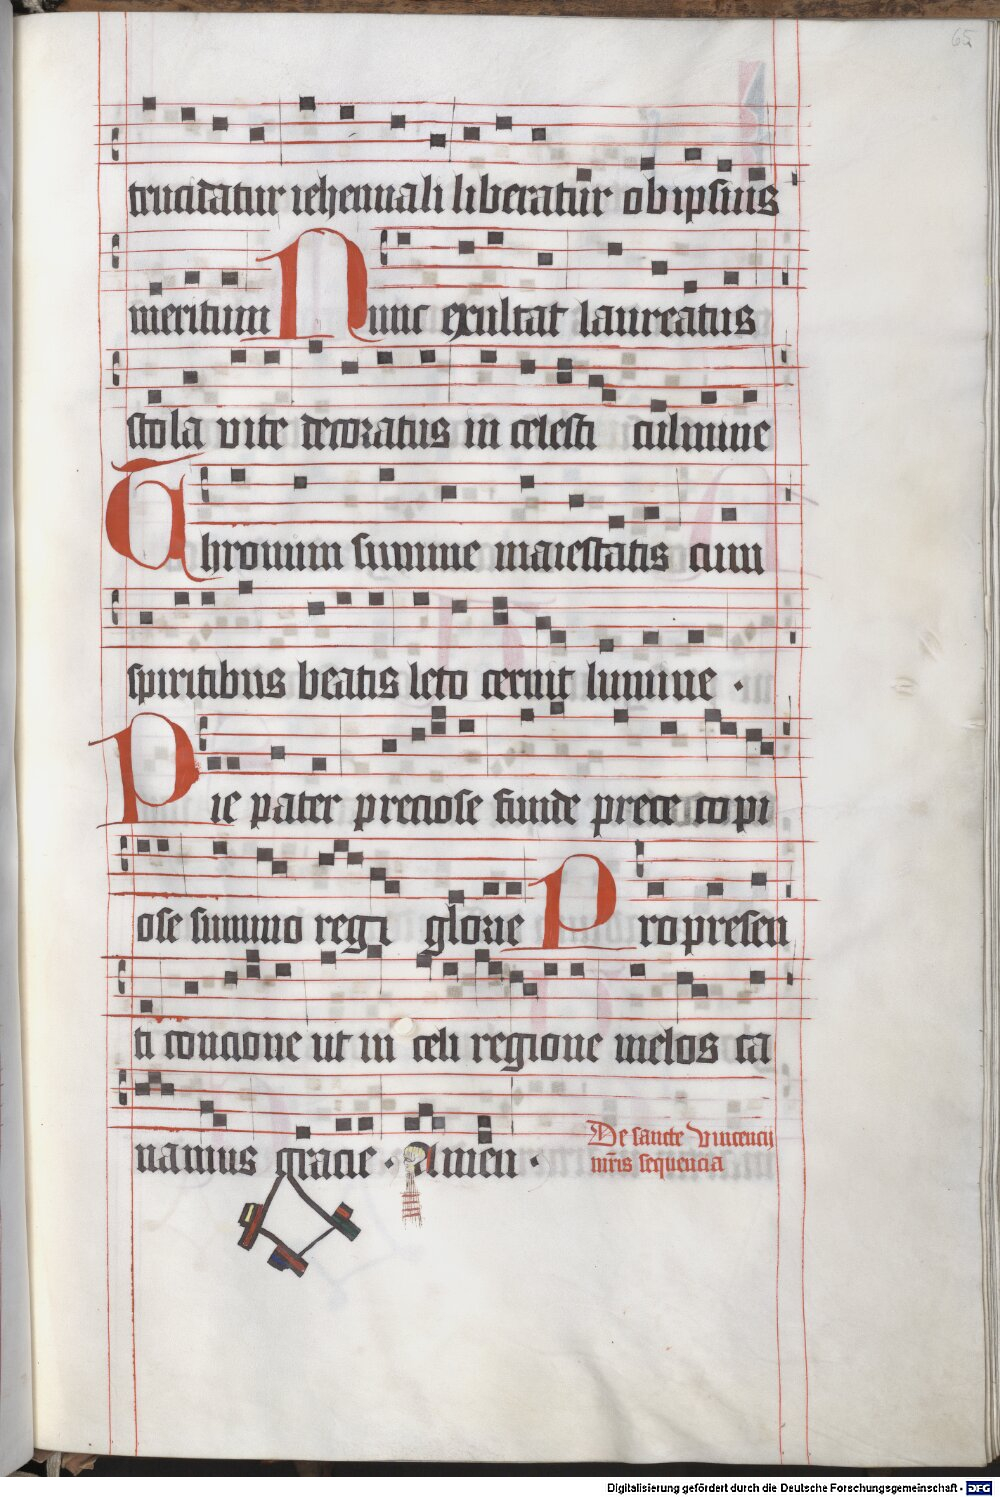 65
trucidatur iehennali liberatur ob ipsius
meritum Nunc exultat laureatus
stola vite decoratus in celesti culmine
Thronum summe maiestatis cum
spiritibus beatis leto cernit lumine ·
Pie pater preciose funde prece copi
ose summo regi glorie Pro presen
ti concione ut in celi regione melos ca
namus gracie · Amen ·
De sancte Vincencij
mr̄is sequencia
Digitalisierung gefördert durch die Deutsche Forschungsgemeinschaft - DFG